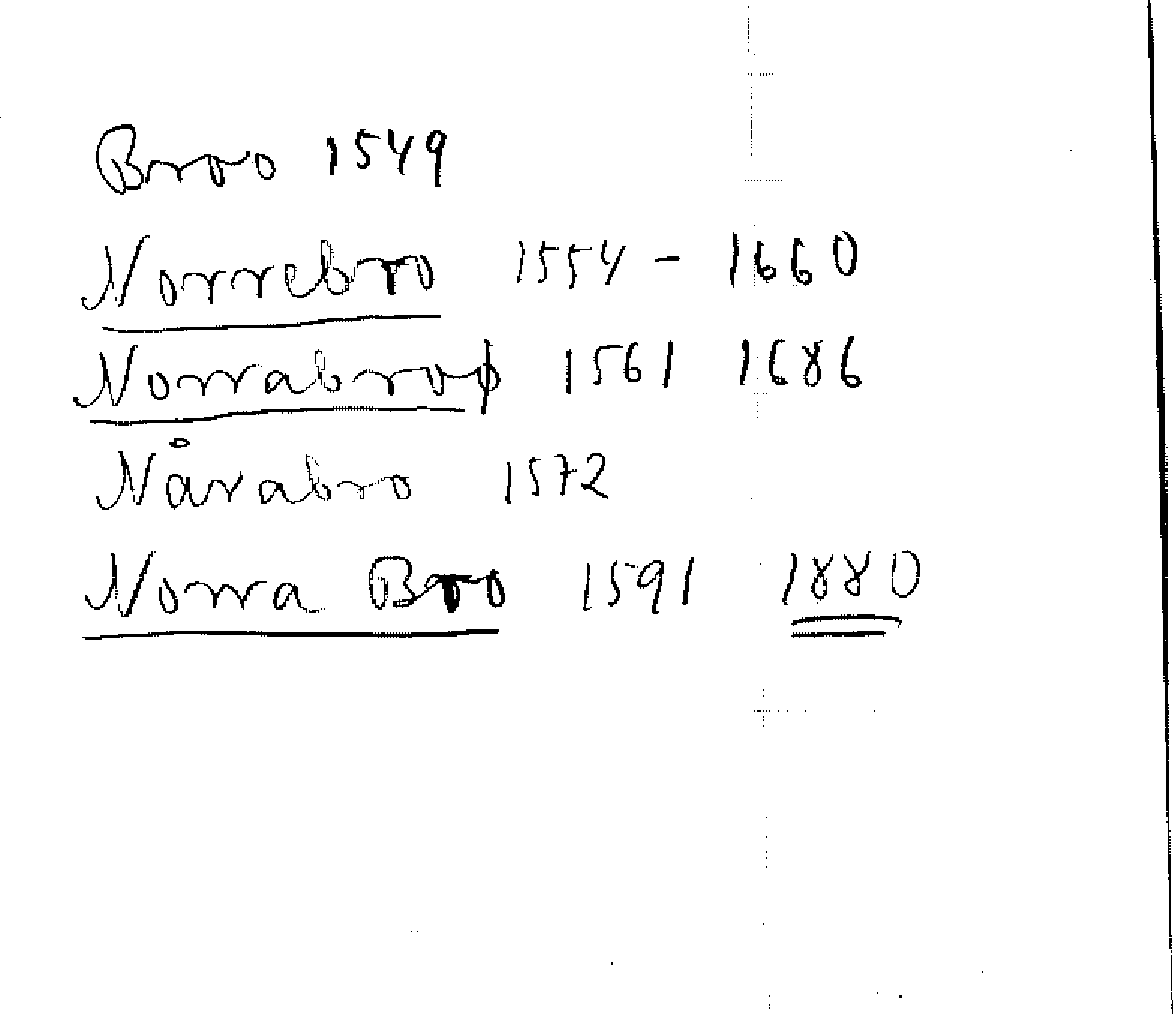 Broo 1549
Norrebro 1554 - 1660
Norrabro 1561 1686
Nårabro 1572
Norra Bro 1591 1880